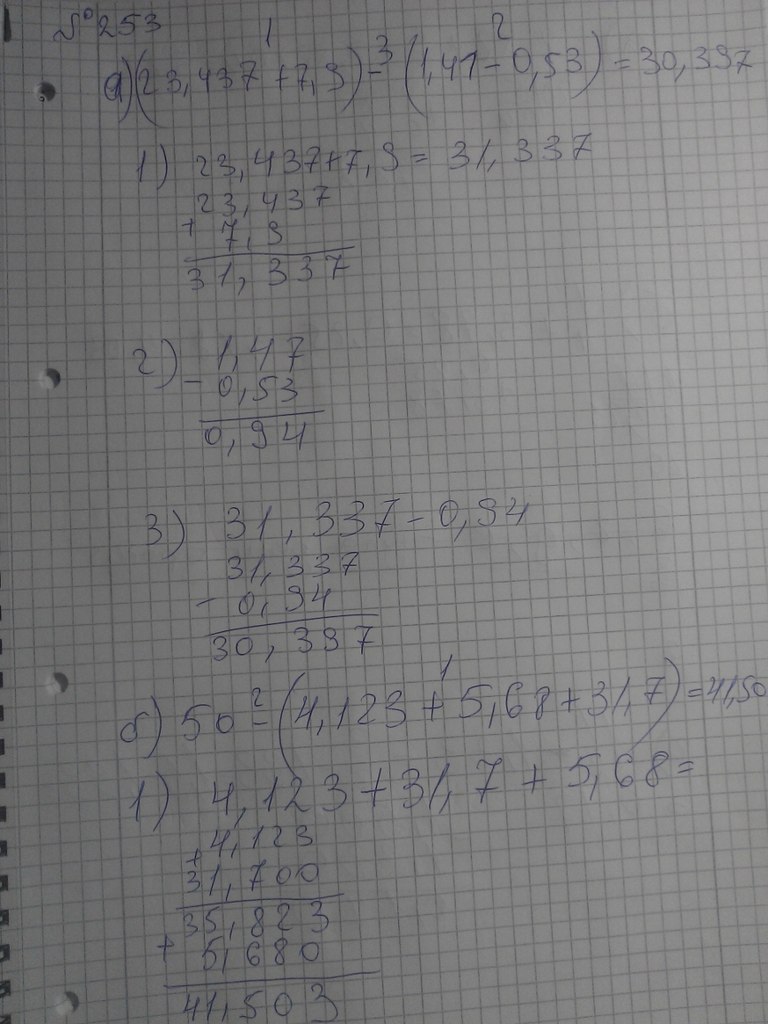 №253
1 2
а) (23,437 + 7,9) -³ (1,47 - 0,53) = 30,397
1) 23,437+7,9 = 31,337
23,437
+ 7,9
31,337
2) 1,47
- 0,53
0,94
3) 31,337 - 0,94
31,337
- 0,94
30,397
1
б) 50 -² (4,123 + 5,68 + 31,7) = 41,50
1) 4,123 + 31,7 + 5,68 =
4,123
+ 31,700
35,823
+ 5,680
41,503